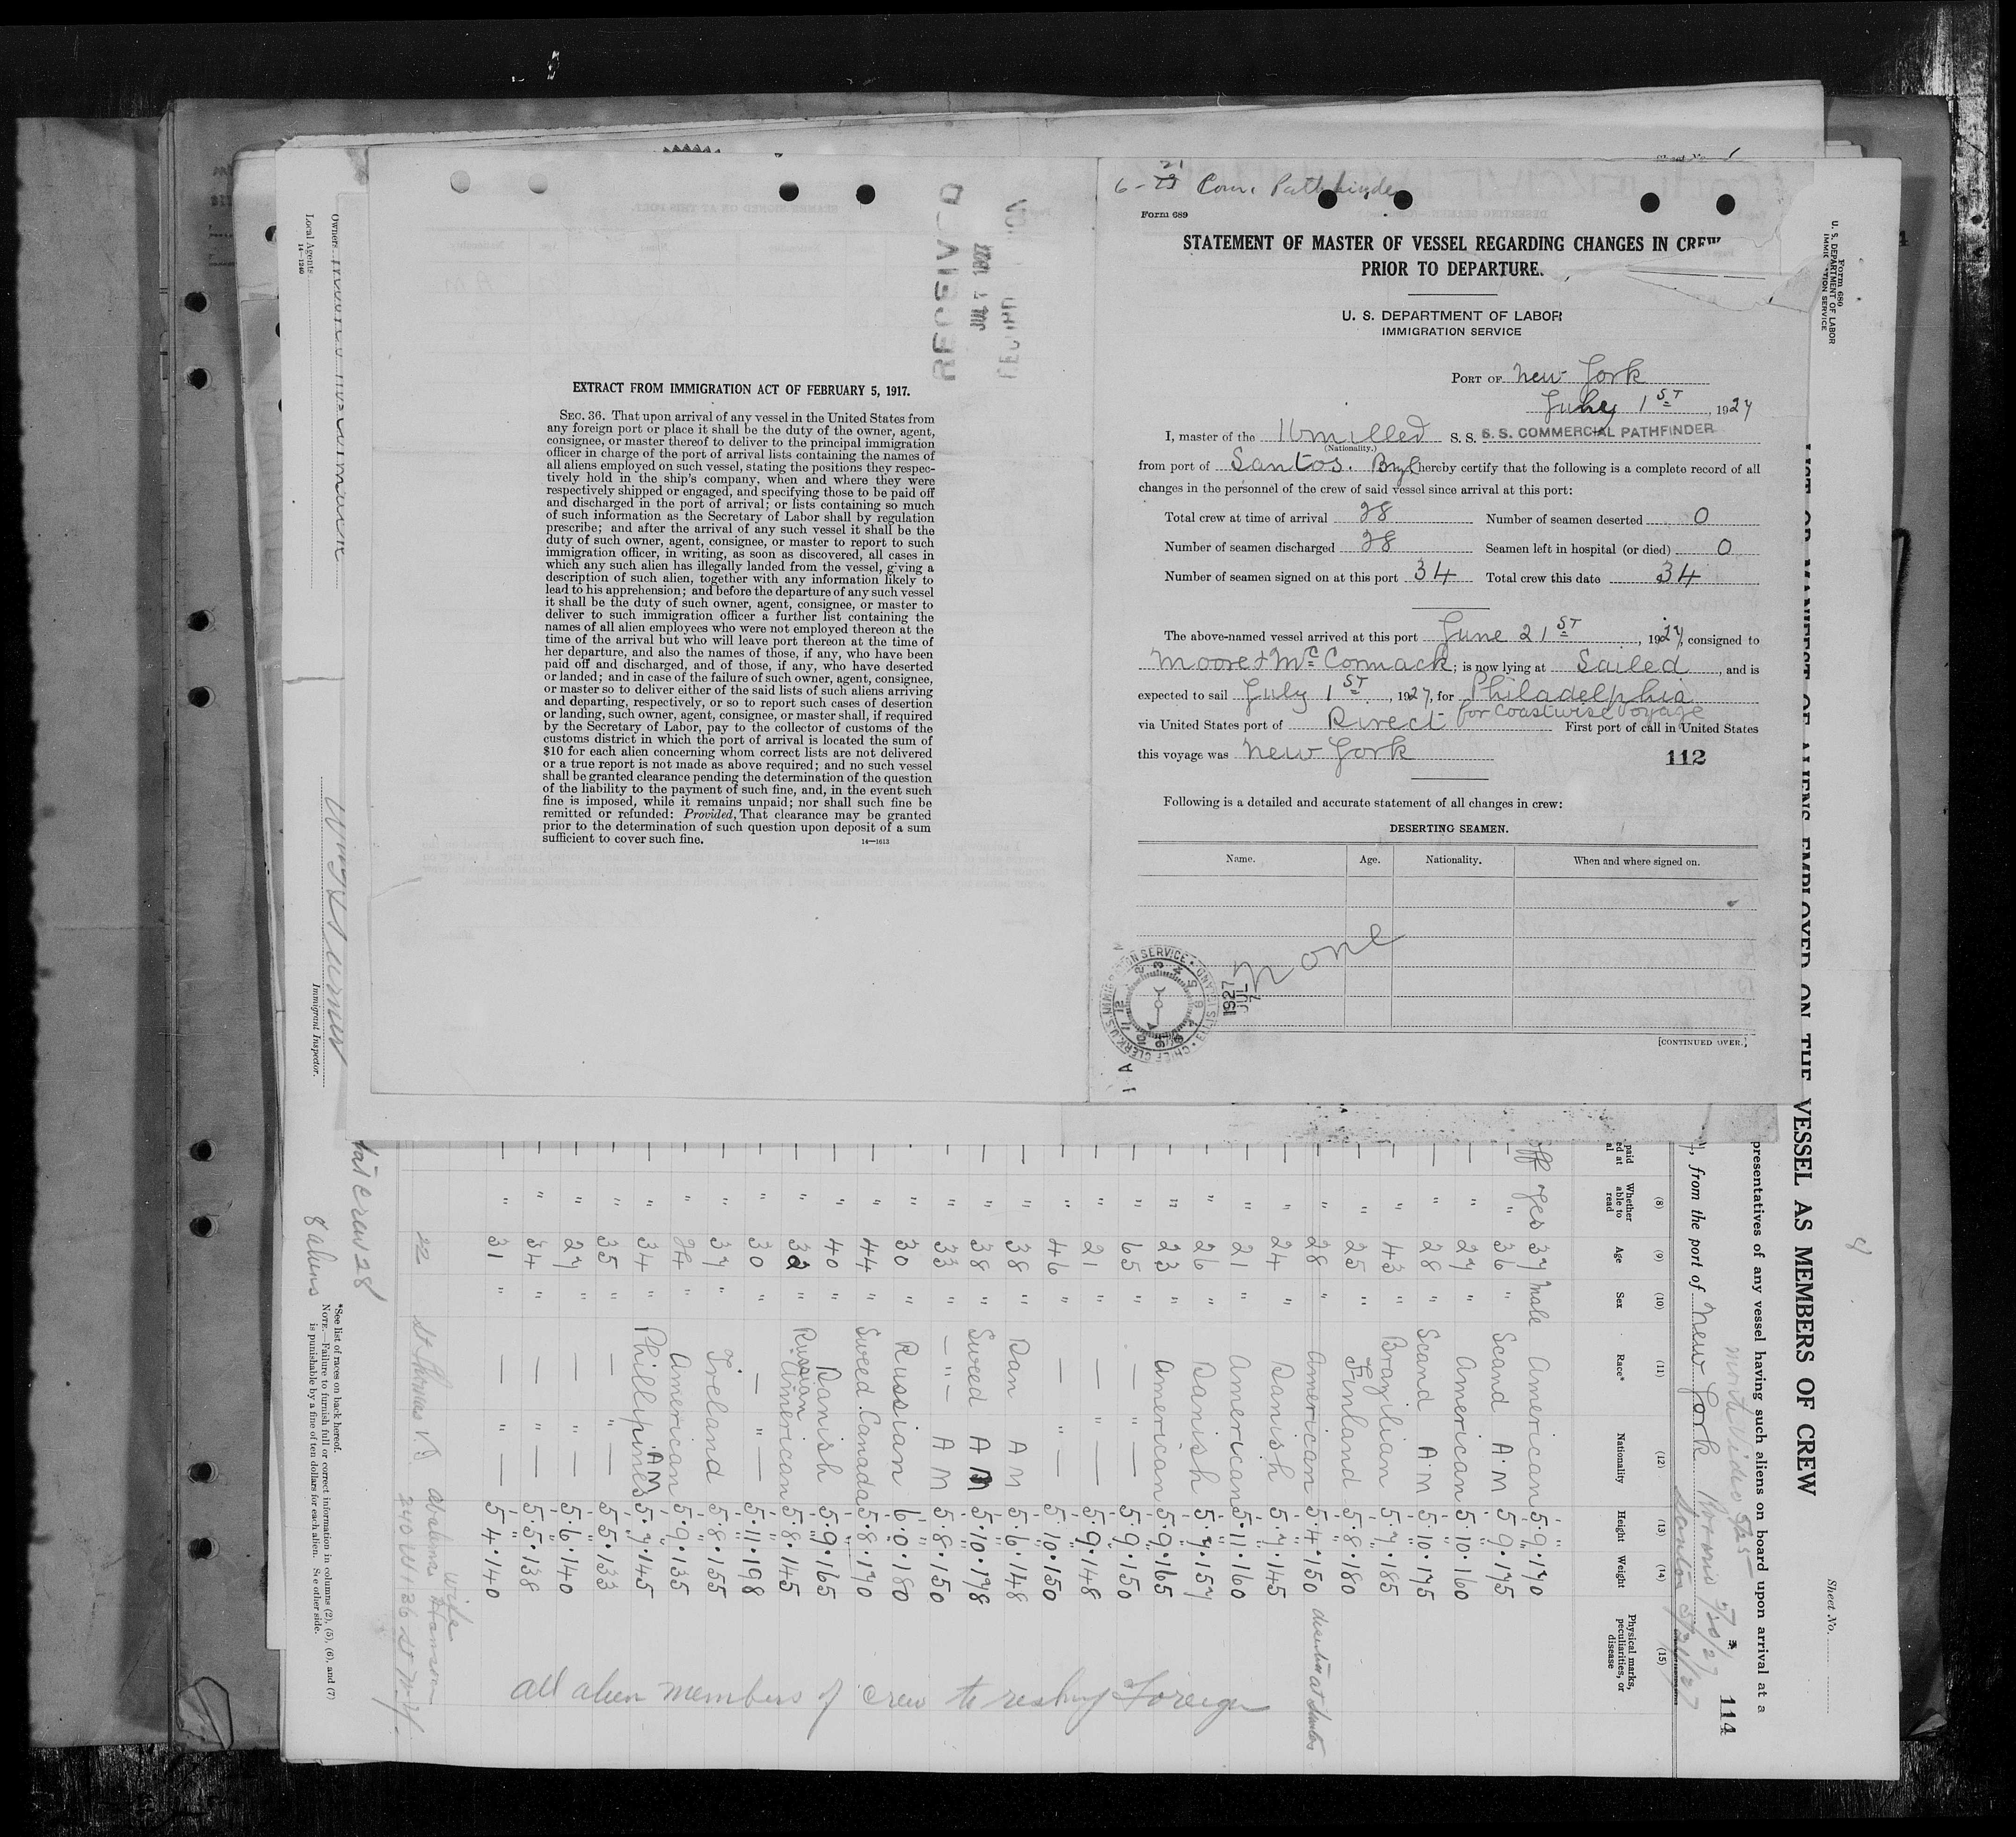 6-21 Com. Pathfinder
Form 689
STATEMENT OF MASTER OF VESSEL REGARDING CHANGES IN CREW
PRIOR TO DEPARTURE.
U. S. DEPARTMENT OF LABOR
IMMIGRATION SERVICE
PORT OF New York
July 1 ST, 1927
I, master of the S. S. S. S. COMMERCIAL PATHFINDER
(Nationality.)
from port of Santos. hereby certify that the following is a complete record of all
changes in the personnel of the crew of said vessel since arrival at this port:
Total crew at time of arrival 28 Number of seamen deserted 0
Number of seamen discharged 28 Seamen left in hospital (or died) 0
Number of seamen signed on at this port 34 Total crew this date 34
The above-named vessel arrived at this port June 21 ST, 1927, consigned to
Moore & McCormack; is now lying at Sailed, and is
expected to sail July 1 ST, 1927, for Philadelphia
for coastwise voyage
via United States port of Direct First port of call in United States
this voyage was New York
112
Following is a detailed and accurate statement of all changes in crew:
DESERTING SEAMEN.
Name. Age. Nationality. When and where signed on.
none
[CONTINUED OVER.]
CHIEF CLERK U.S. IMMIGRATION SERVICE • ELLIS ISLAND •
1927 JUL 7
RECEIVED
JUL 7 1927
EXTRACT FROM IMMIGRATION ACT OF FEBRUARY 5, 1917.
SEC. 36. That upon arrival of any vessel in the United States from
any foreign port or place it shall be the duty of the owner, agent,
consignee, or master thereof to deliver to the principal immigration
officer in charge of the port of arrival lists containing the names of
all aliens employed on such vessel, stating the positions they respec-
tively hold in the ship's company, when and where they were
respectively shipped or engaged, and specifying those to be paid off
and discharged in the port of arrival; or lists containing so much
of such information as the Secretary of Labor shall by regulation
prescribe; and after the arrival of any such vessel it shall be the
duty of such owner, agent, consignee, or master to report to such
immigration officer, in writing, as soon as discovered, all cases in
which any such alien has illegally landed from the vessel, giving a
description of such alien, together with any information likely to
lead to his apprehension; and before the departure of any such vessel
it shall be the duty of such owner, agent, consignee, or master to
deliver to such immigration officer a further list containing the
names of all alien employees who were not employed thereon at the
time of the arrival but who will leave port thereon at the time of
her departure, and also the names of those, if any, who have been
paid off and discharged, and of those, if any, who have deserted
or landed; and in case of the failure of such owner, agent, consignee,
or master so to deliver either of the said lists of such aliens arriving
and departing, respectively, or so to report such cases of desertion
or landing, such owner, agent, consignee, or master shall, if required
by the Secretary of Labor, pay to the collector of customs of the
customs district in which the port of arrival is located the sum of
$10 for each alien concerning whom correct lists are not delivered
or a true report is not made as above required; and no such vessel
shall be granted clearance pending the determination of the question
of the liability to the payment of such fine, and, in the event such
fine is imposed, while it remains unpaid; nor shall such fine be
remitted or refunded: Provided, That clearance may be granted
prior to the determination of such question upon deposit of a sum
sufficient to cover such fine.
14—1613
Form 680
U. S. DEPARTMENT OF LABOR
IMMIGRATION SERVICE
Sheet No.
114
LIST OR MANIFEST OF ALIENS EMPLOYED ON THE VESSEL AS MEMBERS OF CREW
presentatives of any vessel having such aliens on board upon arrival at a
, from the port of New York
Santos 5/31/27
(8) (9) (10) (11) (12) (13) (14) (15)
Whether able to read Age Sex Race* Nationality Height Weight Physical marks, peculiarities, or disease
off Yes 37 male American 5·9·170
" 36 " Scand A·M 5·9·175
" 27 " American 5·10·160
" 28 " Scand A·M 5·10·175
" 43 " Brazilian 5·7·185
" 25 " Finland 5·8·180
" 28 " American 5·4·150 deserted at Santos
" 24 " Danish 5·7·145
" 21 " American 5·11·160
" 26 " Danish 5·7·157
" 23 " American 5·9·165
" 65 " — " — 5·9·150
" 21 " — " — 5·9·148
" 46 " — " — 5·10·150
" 38 " Dan A M 5·6·148
" 38 " Swed A M 5·10·178
" 33 " — " — A M 5·8·150
" 30 " Russian 6·0·180
" 44 " Swed. Canada 5·8·170
" 40 " Danish 5·9·165
" 32 " Russian American 5·8·145
" 30 " — " — 5·11·198
" 37 " Ireland 5·8·155
" 24 " American 5·9·135
" 34 " Phillipines AM 5·7·145
" 35 " — " — 5·5·133
" 27 " — " — 5·6·140
" 34 " — " — 5·5·138
" 31 " — " — 5·4·140
22 St Thomas V.I.
wife
240 W 136 St N.Y.
all alien members of crew to reship Foreign
crew 28
8 aliens
*See list of races on back hereof.
NOTE.—Failure to furnish full or correct information in columns (2), (5), (6), and (7)
is punishable by a fine of ten dollars for each alien. See other side.
Immigrant Inspector.
Owners
Local Agents
14—1240